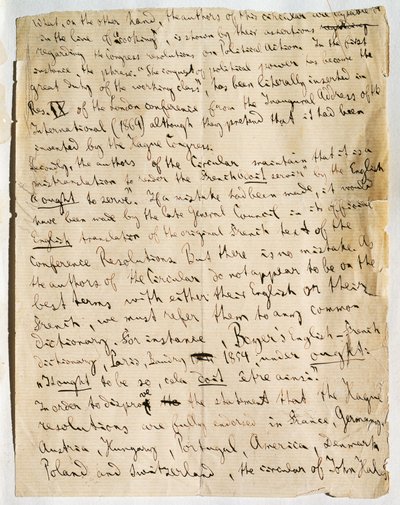 What, on the other hand, the authors of this circular are capable of
in the line of "cooking", is shown by their assertions
regarding the Congress resolution on Political Action. In the first
instance, the phrase: "The conquest of political power has become the
great duty of the working class", has been literally inserted in
Res. IX of the London Conference from the Inaugural Address of the
International (1864) although they pretend that it had been
invented by the Hague Congress.
Secondly, the authors of the Circular maintain that it is a
mistranslation to render the French doit servir by the English
"ought to serve". If a mistake had been made, it would
have been made by the late General Council in its official
English translation of the original French text of the
Conference Resolutions. But there is no mistake. As
the authors of the Circular do not appear to be on the
best terms with either their English or their
French, we must refer them to any common
dictionary. For instance, Boyer's English-French
dictionary, Paris, Baudry 1854, under ought:
"It ought to be so, cela doit être ainsi."
In order to disprove the statement that the Hague
resolutions are fully endorsed in France, Germany,
Austria, Hungary, Portugal, America, Denmark,
Poland and Switzerland, the circular of John Hales